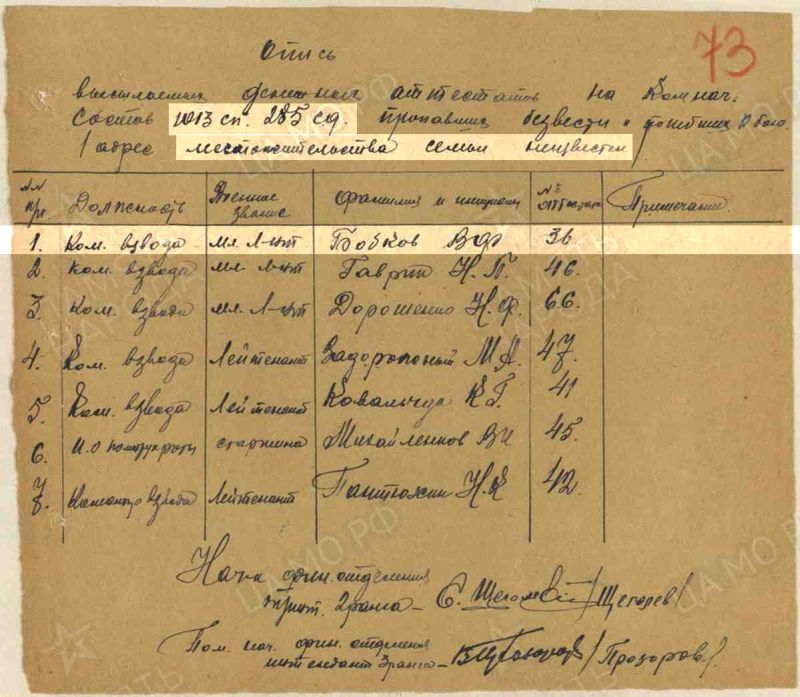 73
Опись
высылаемых денежных аттестатов на Комнач.
состав 1013 сп. 285 сд. пропавших безвести и погибших в бою
/ адрес местожительства семьи неизвестен
№№ пр. Должность Военное звание Фамилия и инициалы №№ аттестата Примечание
1. Ком. взвода мл. л-нт Бобков В Ф 36
2. ком. взвода мл. л-нт Гаврин Н. П. 46.
3. Ком. взвода мл. л-нт Дорошенко Н. Ф. 66
4. Ком. взвода Лейтенант Задорожный М А. 47.
5. Ком. взвода Лейтенант Ковальчук К Г. 41
6. И.О политрук роты старшина Михайленков В И 45.
7. Командир взвода Лейтенант Пантюхин Н. Я 42.
Нач. фин. отделения
т/инт. 2 ранга – Щеголев/
Пом. нач. фин. отделения
интендант 3 ранга – /Прозоров/
ЦАМО РФ
ПАМЯТЬ НАРОДА